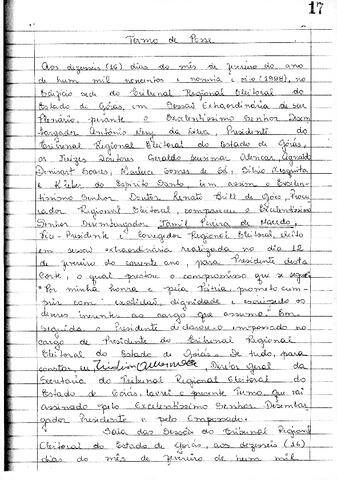 17
Termo de Posse
Aos dezesseis (16) dias do mês de fevereiro do ano
de hum mil novecentos e noventa e oito (1998), no
Edifício sede do Tribunal Regional Eleitoral do
Estado de Goiás, em Sessão Extraordinária de seu
Plenário, perante o Excelentíssimo Senhor Desem-
bargador Antônio Nery da Silva, Presidente do
Tribunal Regional Eleitoral do Estado de Goiás,
os Juízes Doutores Geraldo Alencar,
Denisart Soares, Gomes de Sá, Sílvio Mesquita
e do Espírito Santo, bem assim o Excelen-
tíssimo Senhor Doutor Renato Brill de Góes, Procu-
rador Regional Eleitoral, compareceu o Excelentíssimo
Senhor Desembargador Jamil Pereira de Macedo,
Vice-Presidente e Corregedor Regional Eleitoral, eleito
em sessão extraordinária realizada no dia 12
de fevereiro do corrente ano, para Presidente desta
Corte, o qual prestou o compromisso que se segue:
"Por minha honra e pela Pátria, prometo cum-
prir com exatidão, dignidade e escrúpulo os
deveres inerentes ao cargo que assumo". Em
seguida o Presidente declarou-o empossado no
cargo de Presidente do Tribunal Regional
Eleitoral do Estado de Goiás. De tudo, para
constar, eu Diretor Geral da
Secretaria do Tribunal Regional Eleitoral do
Estado de Goiás, lavrei o presente Termo que vai
assinado pelo Excelentíssimo Senhor Desembar-
gador Presidente e pelo Empossado.
Sala das Sessões do Tribunal Regional
Eleitoral do Estado de Goiás, aos dezesseis (16)
dias do mês de fevereiro de hum mil